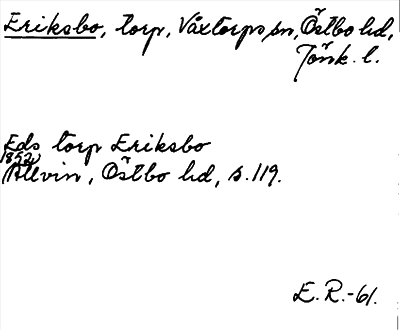 Eriksbo, torp, Våxtorps sn, Östbo hd,
Jönk. l.
Eds torp Eriksbo
1852
Allvin, Östbo hd, s. 119.
E. R.-61.